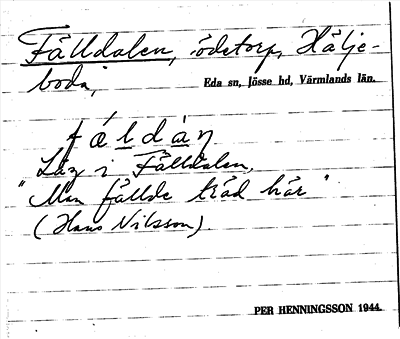 Fälldalen, ödetorp, Hälje-
boda,
Eda sn, Jösse hd, Värmlands län.
fǽldàɳ
Låg i Fälldalen.
"Man fällde träd här"
(Hans Nilsson).
PER HENNINGSSON 1944.